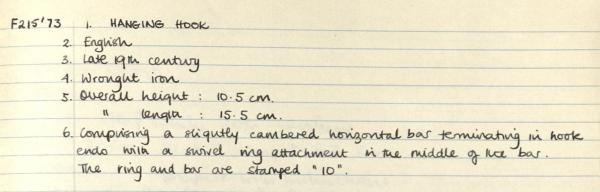 F215'73 1. HANGING HOOK
2. English
3. Late 19th century
4. Wrought iron
5. Overall height : 10.5 cm.
" length : 15.5 cm.
6. Comprising a slightly cambered horizontal bar terminating in hook
ends with a swivel ring attachment in the middle of the bar.
The ring and bar are stamped "10".